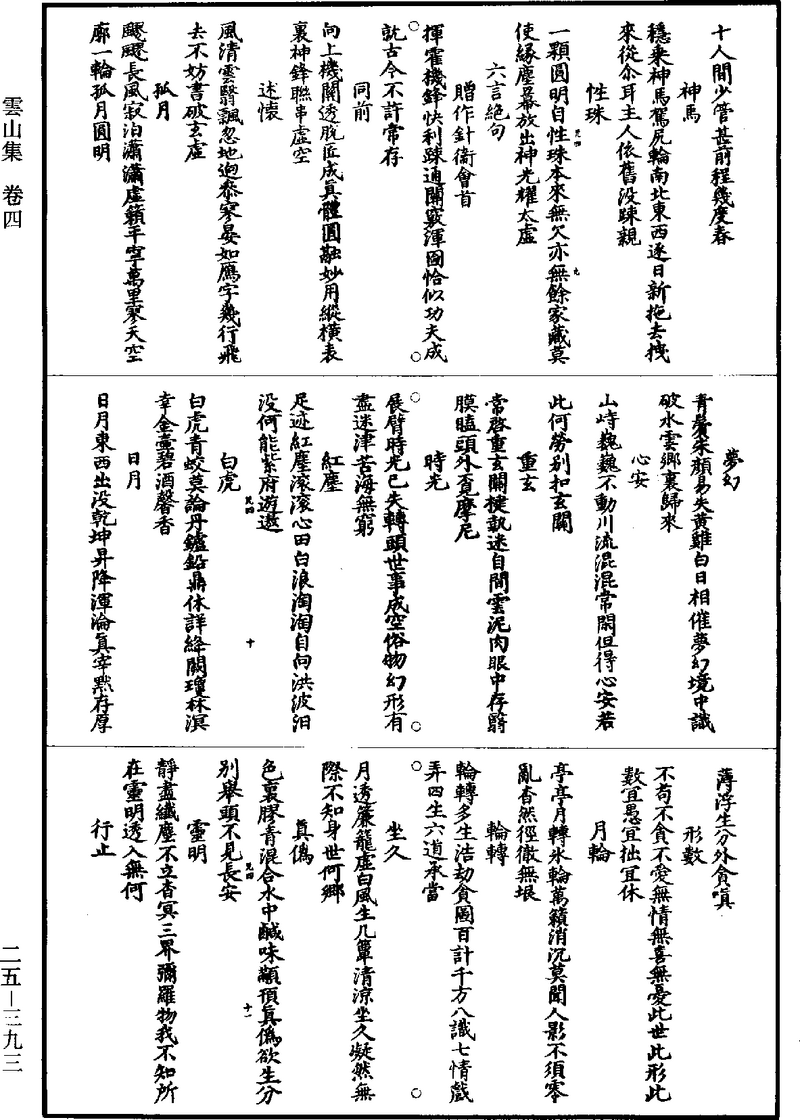 十人間少管甚前程幾度春
神馬
穩乘神馬駕尻輪南北東西逐日新拖去拽
來從尒耳主人依舊没踈親
性珠
一顆圓明自性珠本來無欠亦無餘家藏莫
使緣塵幕放出神光耀太虛
六言絶句
贈作針衛會首
揮霍機鋒快利踈通關竅渾圇恰似功夫成
就古今不許常存
同前
向上機關透脫匠成真體圓融妙用縱横表
裏神鋒聯串虛空
述懷
風清雲翳飄忽地迥黍寥晏如鴈字幾行飛
去不妨書破玄虛
孤月
颼颼長風寂泊瀟瀟虛籟平寧萬里寥天空
廓一輪孤月圓明
夢幻
青鬢朱顔易失黄雞白日相催夢幻境中識
破水雲鄉裏歸來
心安
山峙巍巍不動川流混混常閑但得心安若
此何勞别扣玄關
重玄
常啓重玄關楗執迷自間雲泥肉眼中存翳
膜瞌頭外覔摩尼
時光
展臂時光已失轉頭世事成空俗物幻形有
盡迷津苦海無窮
紅塵
足迹紅塵滾滾心田白浪淘淘自向洪波汩
没何能紫府遊遨
白虎
白虎青蛟莫論丹鑪鉛鼎休詳絳闕瓊林溟
幸金壷碧酒馨香
日月
日月東西出没乾坤昇降渾淪真宰黙存厚
薄浮生分外貪嗔
形數
不苟不貪不愛無情無喜無憂此世此形此
數宜愚宜拙宜休
月輪
亭亭月轉氷輪萬籟消沉莫聞人影不須零
亂杳然徑徹無垠
輪轉
輪轉多生浩劫貪圖百計千方八識七情戲
弄四生六道承當
坐久
月透簾籠虛白風生几簟清涼坐久凝然無
際不知身世何鄉
真偽
色裏膠青混合水中鹹味顢頇真偽欲生分
别舉頭不見長安
靈明
靜盡纖塵不立杳冥三界彌羅物我不知所
在靈明透入無何
行止
雲山集 卷四
二五－三九三